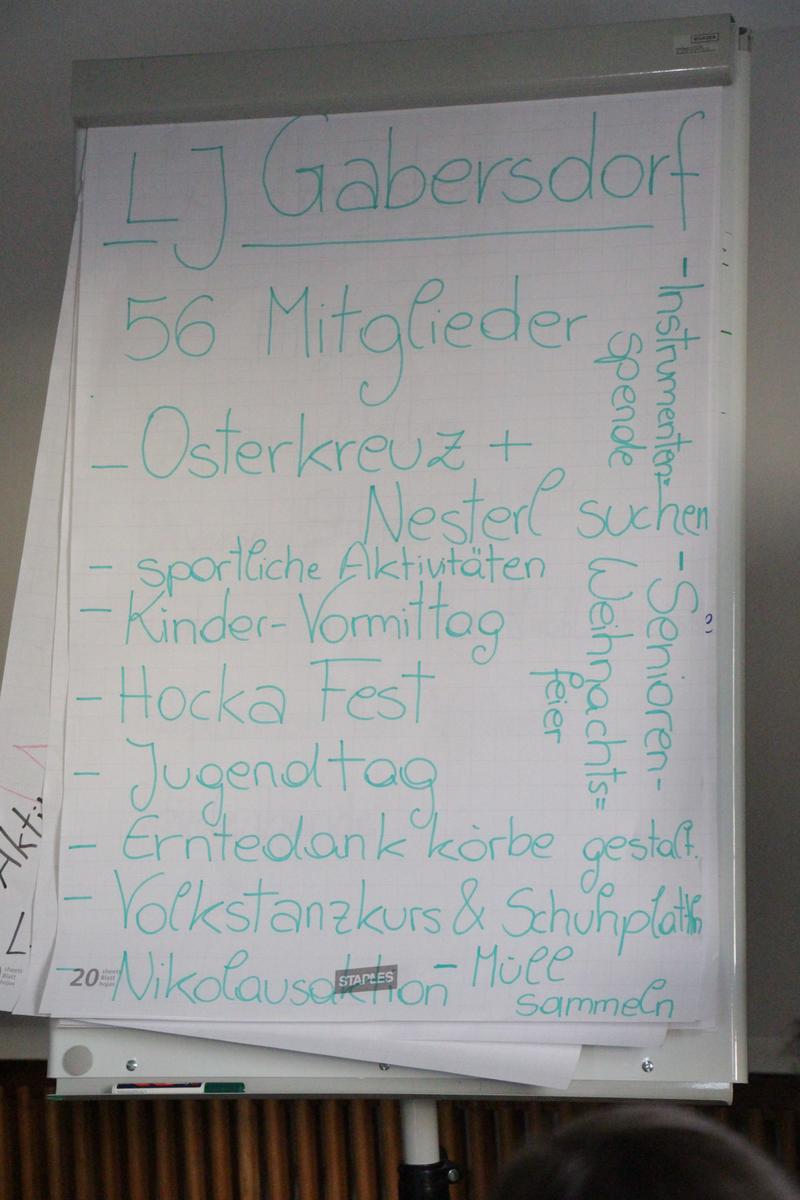 LJ Gabersdorf
56 Mitglieder
- Osterkreuz +
Nesterl suchen
- sportliche Aktivitäten
- Kinder-Vormittag
- Hocka Fest
- Jugendtag
- Erntedankkörbe gestalt.
- Volkstanzkurs & Schuhplattln
- Nikolausaktion
- Müll
sammeln
- Instrumenten=
Spende
- Senioren-
Weihnachts=
feier
Akti
L
20 sheets
Blatt
hojas
STAPLES
sheets
Blatt
hojas